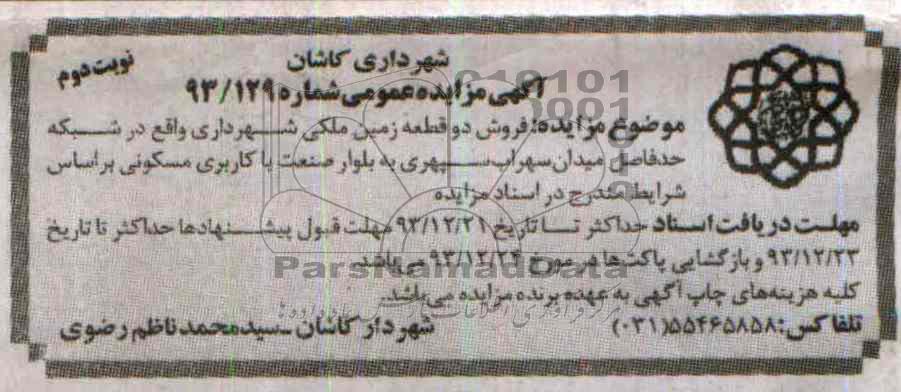 شهرداری کاشان
نوبت دوم
آگهی مزایده عمومی شماره ۹۳/۱۲۹
موضوع مزایده: فروش دو قطعه زمین ملکی شهرداری واقع در شبکه
حدفاصل میدان سهراب سپهری به بلوار صنعت با کاربری مسکونی براساس
شرایط مندرج در اسناد مزایده
مهلت دریافت اسناد حداکثر تا تاریخ ۹۳/۱۲/۲۱ مهلت قبول پیشنهادها حداکثر تا تاریخ
۹۳/۱۲/۲۳ و بازگشایی پاکت‌ها در مورخ ۹۳/۱۲/۲۴ می باشد.
کلیه هزینه‌های چاپ آگهی به عهده برنده مزایده می‌باشد.
تلفاکس: ۵۵۴۶۵۸۵۸(۰۳۱)
شهردار کاشان - سیدمحمد ناظم رضوی
ParsNamadData